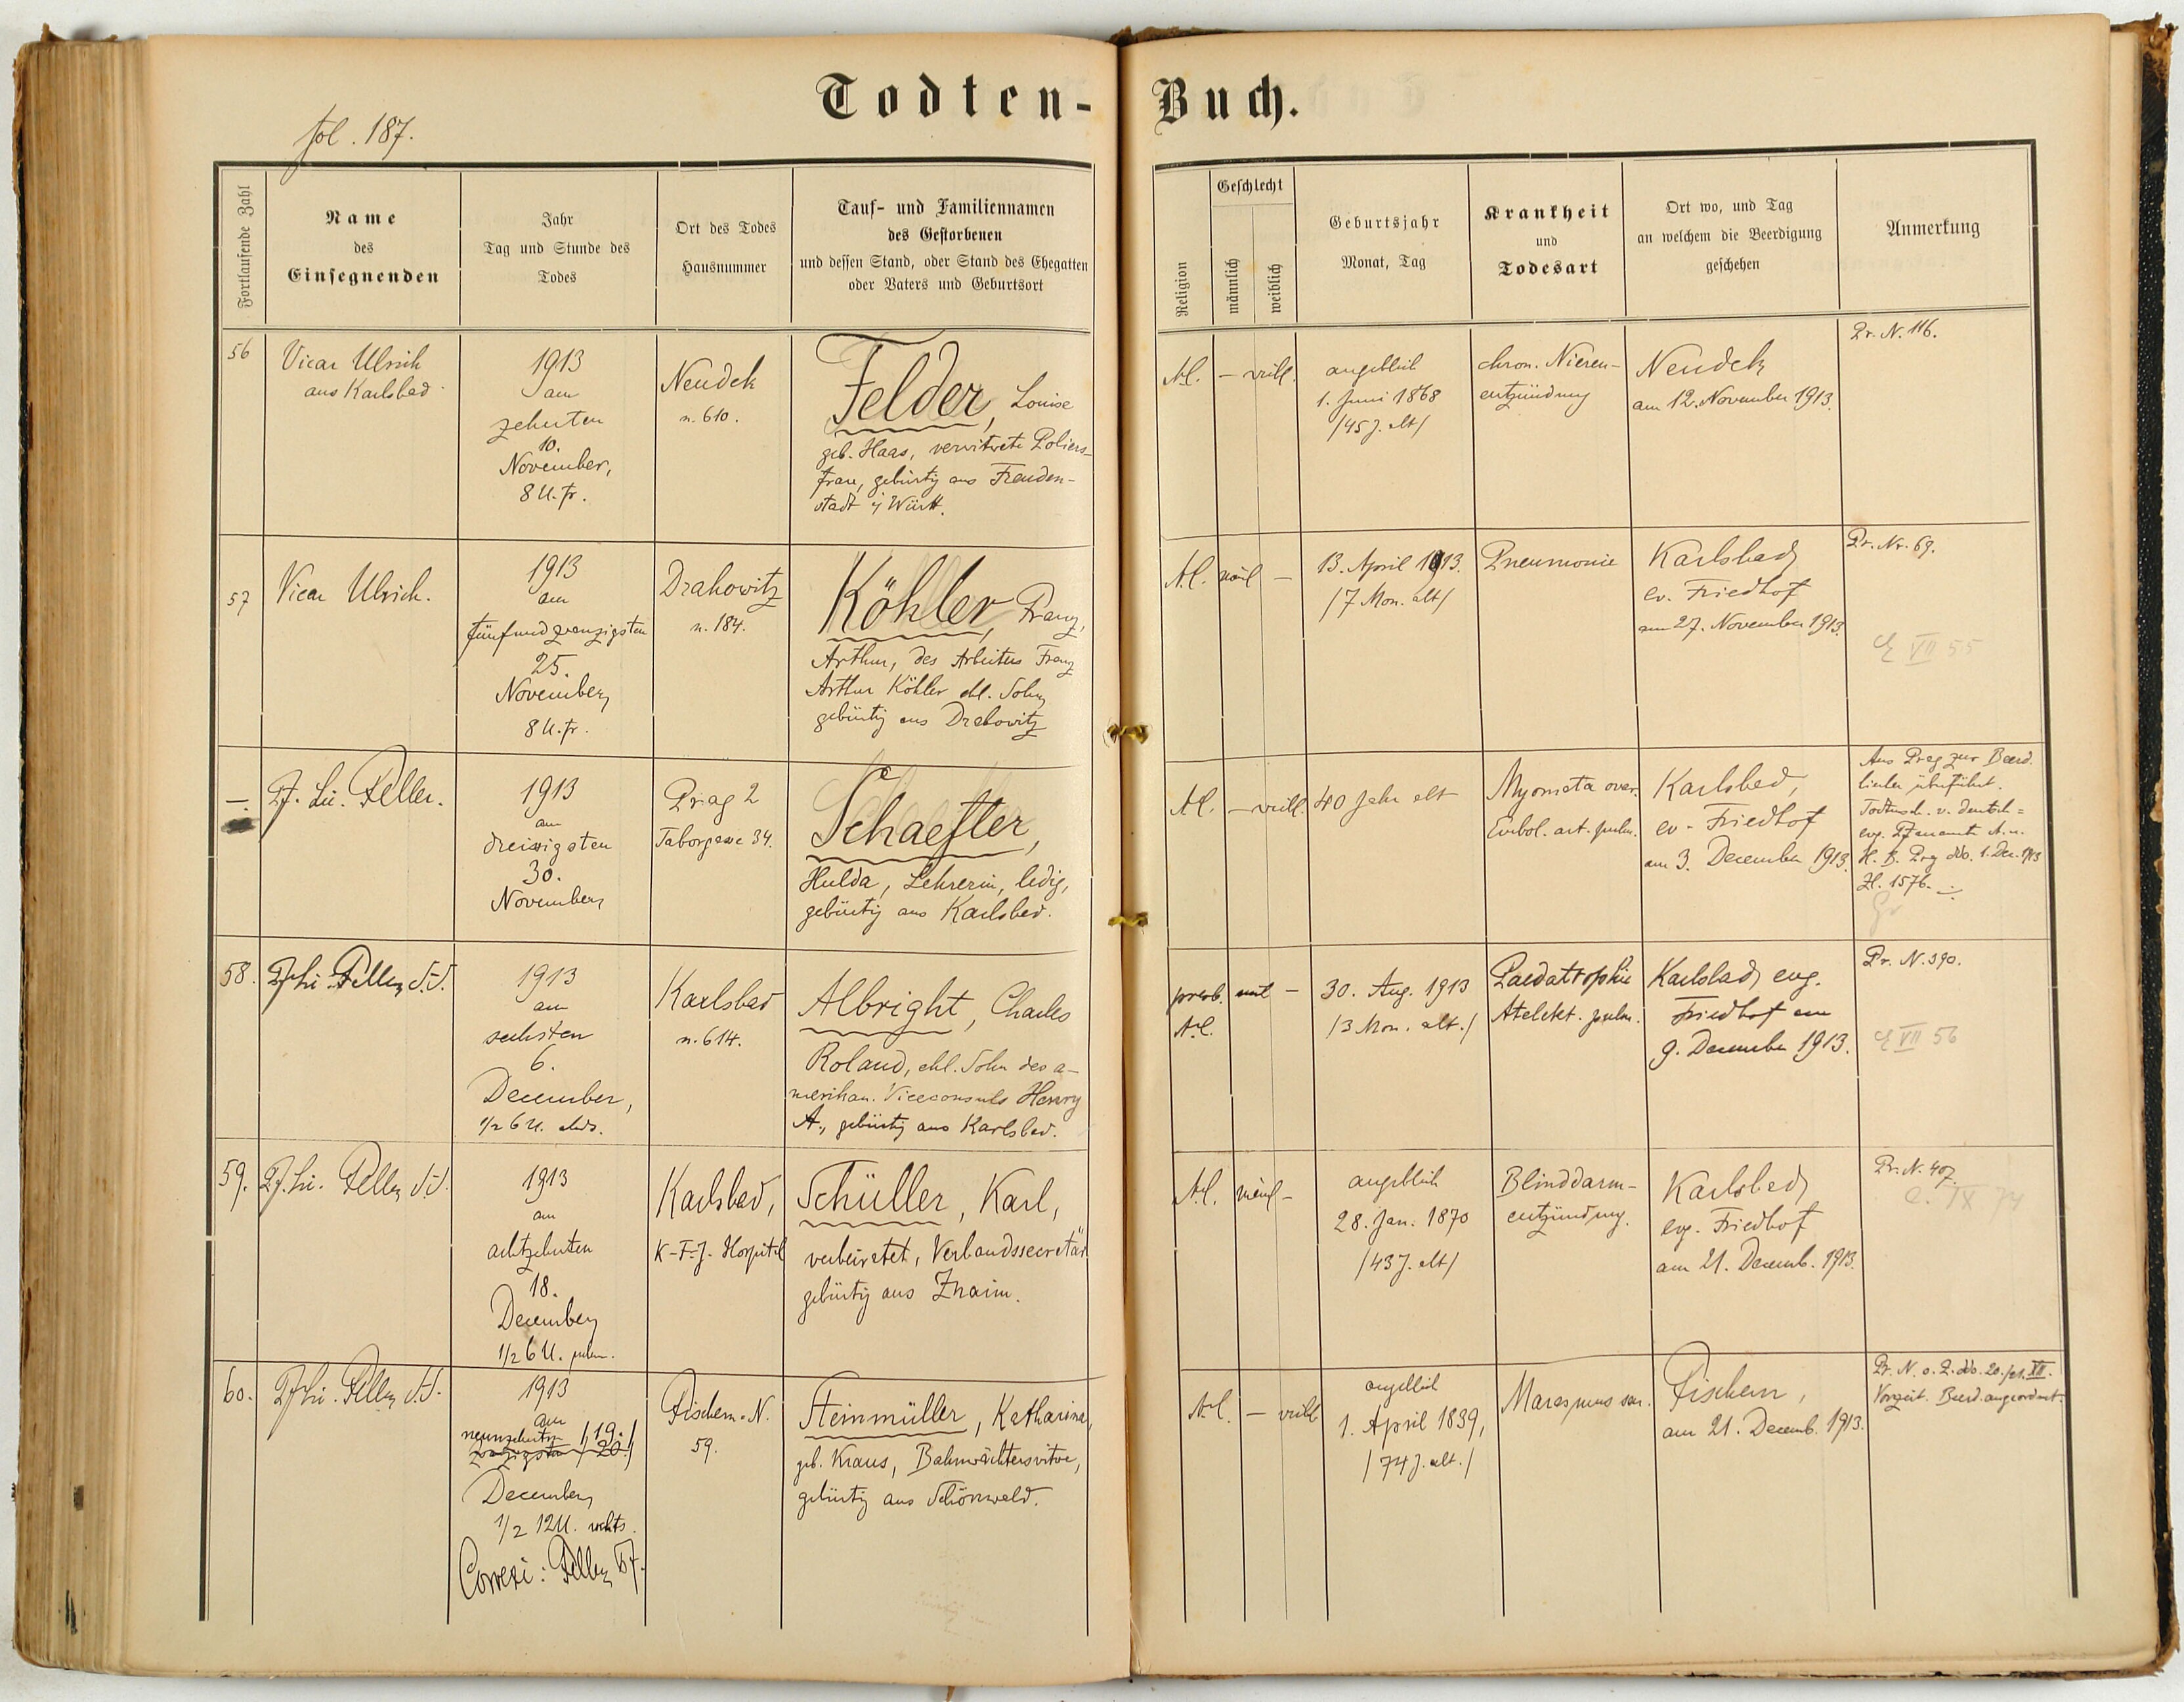 fol. 187.
Todten-Buch.
Fortlaufende Zahl
Name
des
Einsegnenden
Jahr
Tag und Stunde des
Todes
Ort des Todes
Hausnummer
Tauf- und Familiennamen
des Gestorbenen
und dessen Stand, oder Stand des Ehegatten
oder Vaters und Geburtsort
Religion
Geschlecht
männlich
weiblich
Geburtsjahr
Monat, Tag
Krankheit
und
Todesart
Ort wo, und Tag
an welchem die Beerdigung
geschehen
Anmerkung
56
Vicar Ulrich
aus Karlsbad
1913
am
zehnten
10.
November,
8 U. fr.
Neudek
n. 610.
Felder, Louise
geb. Haas, verwitwete Poliers-
frau, gebürtig aus Freuden-
stadt i/ Württ.
A.C.
— weibl.
angeblich
1. Juni 1868
/45 J. alt/
chron. Nieren-
entzündung
Neudek
am 12. November 1913.
Pr. N. 116.
57
Vicar Ulrich.
1913
am
fünfundzwanzigsten
25.
November,
8 U. fr.
Drahowitz
n. 184.
Köhler, Franz,
Arthur, des Arbeiters Franz
Arthur Köhler ehl. Sohn,
gebürtig aus Drahowitz
A.C.
mänl —
13. April 1913.
/7 Mon. alt/
Pneumonie
Karlsbad,
ev. Friedhof
am 27. November 1913.
Pr. Nr. 69.
VII 55
—
Pf. Lic. Feller.
1913
am
dreissigsten
30.
November,
Prag 2
Taborgasse 34.
Schaefler,
Hulda, Lehrerin, ledig,
gebürtig aus Karlsbad.
A.C.
— weibl.
40 Jahr alt
Myomata ovar.
Embol. art. pulm.
Karlsbad,
ev. Friedhof
am 3. December 1913.
Aus Prag zur Beerd.
hierher überführt.
Todtensch. v. deutsch-
evg. Pfarramte A. u.
H. B. Prag ddo. 1. Dec. 1913
Zl. 1576.
58.
Pf. Lic. Feller
1913
am
sechsten
6.
December,
1/2 6 U. abds.
Karlsbad
n. 614.
Albright, Charles
Roland, ehl. Sohn des a-
merikan. Viceconsuls Henry
A., gebürtig aus Karlsbad.
presb.
A.C.
—
30. Aug. 1913
/3 Mon. alt./
Paedatrophie
Atelekt. pulm.
Karlsbad, evg.
Friedhof am
9. December 1913.
Pr. N. 390.
VII 56
59.
Pf. Lic. Feller
1913
am
achtzehnten
18.
December,
1/2 6 U.
Karlsbad,
K-F-J- Hospital
Schüller, Karl,
verheiratet, Verbandssecretär
gebürtig aus Znaim.
A.C.
mänl —
angeblich
28. Jan. 1870
/43 J. alt/
Blinddarm-
entzündung.
Karlsbad,
evg. Friedhof
am 21. Decemb. 1913.
Pr. N. 407.
IX 74
60.
Pf. Lic. Feller
1913
am
neunzehnten /19./
zwanzigsten /20./
December,
1/2 12 U. nachts.
Correxi: Feller, Pf.
Fischern. N.
59.
Steinmüller, Katharina,
geb. Kraus, Bahnwächterswitwe,
gebürtig aus Schönwald.
A.C.
— weibl
angeblich
1. April 1839,
/74 J. alt./
Marasmus sen.
Fischern,
am 21. Decemb. 1913.
Pr. N. o. Z. ddo. 20./XII.
Vorzeit. Beerd. angeordnet.